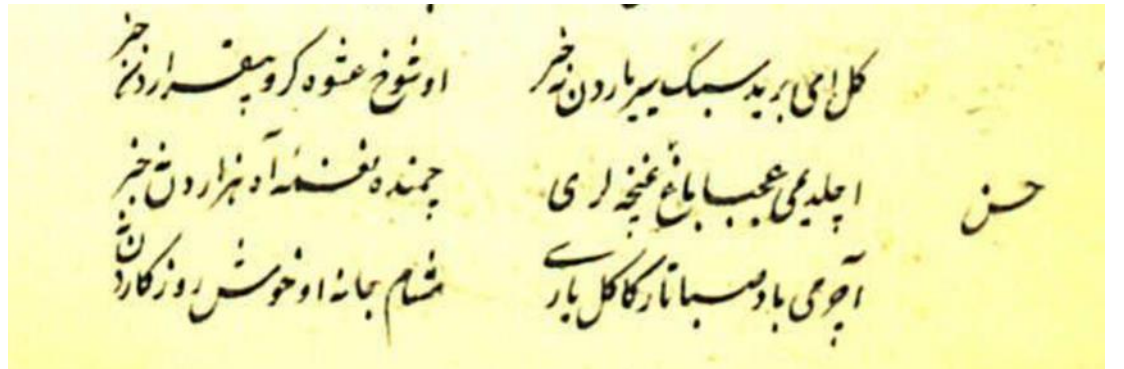 كل ای برید سبك پی یاردن نه خبر او شوخ عشوه كر و بیقراردن نه خبر
حسن اچلدیمی عجبا باغ غنچه لری چمنده نغمه هزاردن نه خبر
آچرمی باد صبا تار كاكل یاری مشام جانه او خوش روزكاردن نه